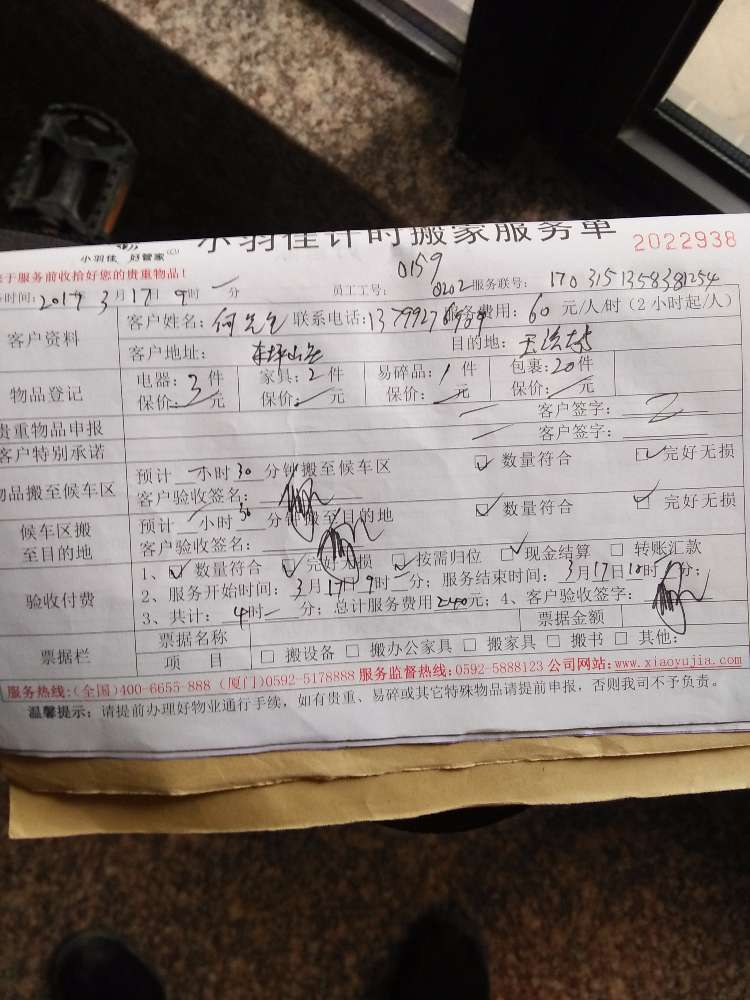 小羽佳计时搬家服务单
小羽佳 好管家
2022938
于服务前收拾好您的贵重物品！
0159
时间：2017年3月17日9时一分 员工工号： 0202 服务联号：1703151358381254
客户资料
客户姓名：何先生 联系电话： 服务费用：60元/人/时（2小时起/人）
客户地址： 目的地：
物品登记
电器：3件 家具：2件 易碎品：1件 包裹：20件
保价：一元 保价：一元 保价：一元 保价：一元
贵重物品申报 客户签字：
客户特别承诺 客户签字：
物品搬至候车区
预计一小时30分钟搬至候车区 ☑数量符合 ☑完好无损
客户验收签名：
候车区搬至目的地
预计一小时30分钟搬至目的地 ☑数量符合 ☑完好无损
客户验收签名：
验收付费
1、☑数量符合 ☑完好无损 ☑按需归位 ☑现金结算 □转账汇款
2、服务开始时间：3月17日9时一分；服务结束时间：3月17日10时一分；
3、共计：4时一分；总计服务费用240元；4、客户验收签字：
票据栏
票据名称 票据金额
项 目 □搬设备 □搬办公家具 □搬家具 □搬书 □其他：
服务热线：(全国)400-6655-888 (厦门)0592-5178888 服务监督热线：0592-5888123 公司网站：www.xiaoyujia.com
温馨提示：请提前办理好物业通行手续，如有贵重、易碎或其它特殊物品请提前申报，否则我司不予负责。